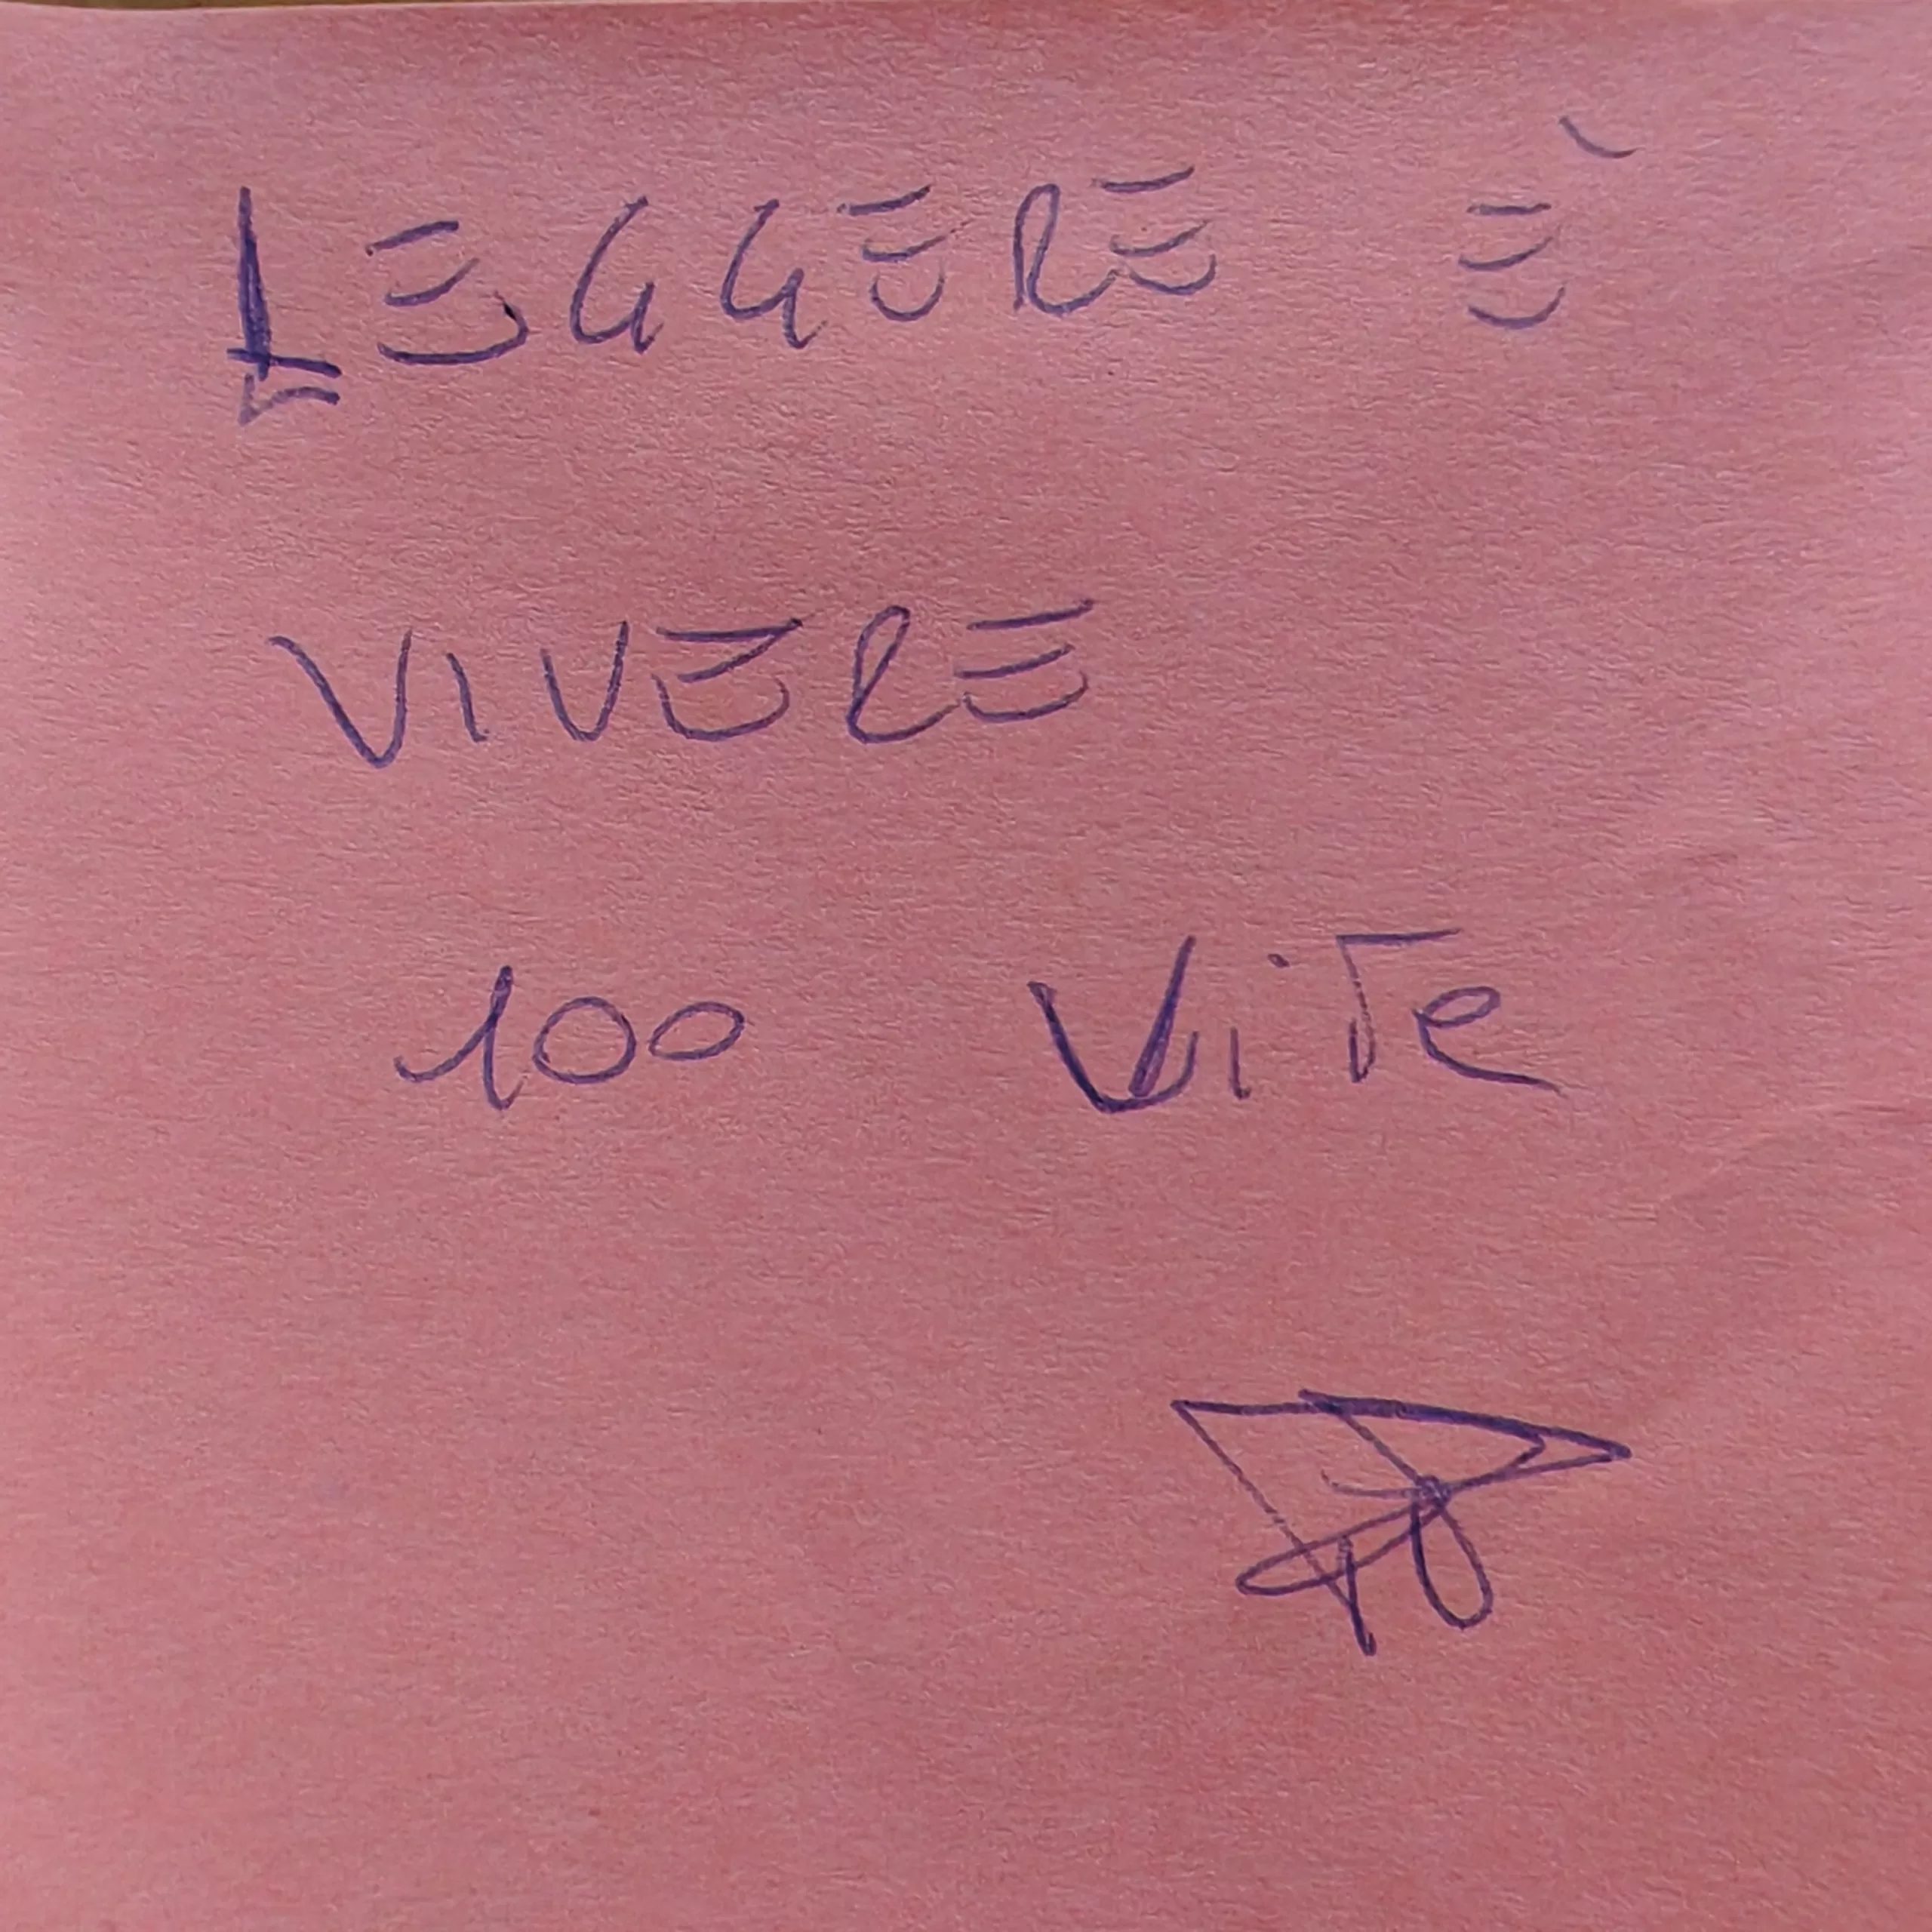 LEGGERE È
VIVERE
100 ViTe